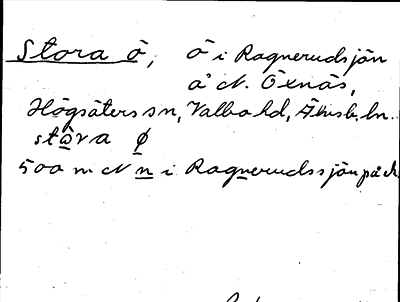 Stora Ö, Ö i Ragnerudsjön
å N. Öxnäs,
Högsäters sn, Valbo hd, Älvsb. ln.
ståra ø
500 m N n i Ragnerudssjön på ek.